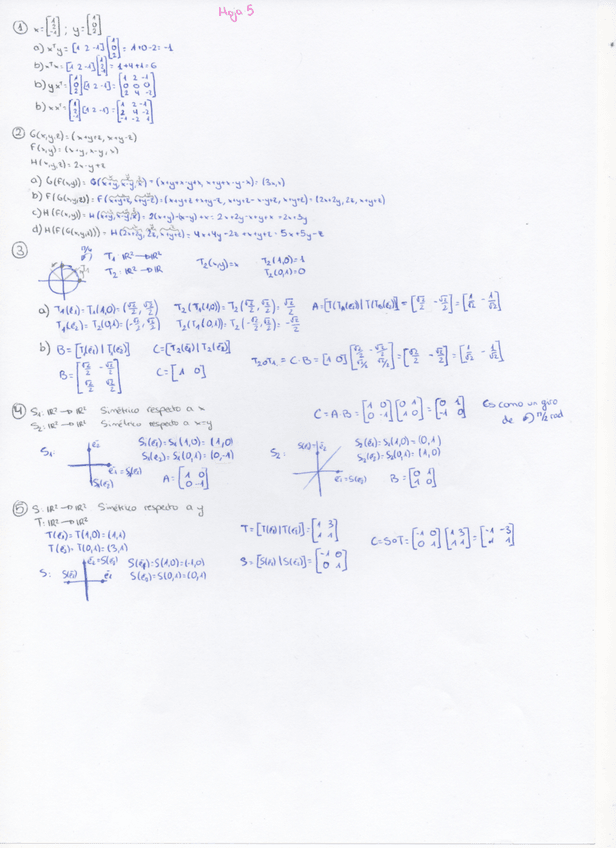 Hoja 5
① x = [1 2 -1]; y = [1 0 2]
a) xᵗy = [1 2 -1] [1 0 2] = 1+0-2 = -1
b) xᵗx = [1 2 -1] [1 2 -1] = 1+4+1 = 6
b) yxᵗ = [1 0 2] [1 2 -1] = [1 2 -1; 0 0 0; 2 4 -2]
b) xxᵗ = [1 2 -1] [1 2 -1] = [1 2 -1; 2 4 -2; -1 -2 1]
② G(x,y,z) = (x+y+z, x+y-z)
F(x,y) = (x+y, x-y, x)
H(x,y,z) = 2x-y+z
a) G(F(x,y)) = G(x+y, x-y, x) = (x+y+x-y+x, x+y+x-y-x) = (3x, x)
b) F(G(x,y,z)) = F(x+y+z, x+y-z) = (x+y+z+x+y-z, x+y+z-x-y+z, x+y+z) = (2x+2y, 2z, x+y+z)
c) H(F(x,y)) = H(x+y, x-y, x) = 2(x+y)-(x-y)+x = 2x+2y-x+y+x = 2x+3y
d) H(F(G(x,y,z))) = H(2x+2y, 2z, x+y+z) = 4x+4y-2z+x+y+z = 5x+5y-z
③ T₁: ℝ²→ℝ²
T₂: ℝ²→ℝ T₂(x,y)=x T₂(1,0)=1
T₂(0,1)=0
a) T₁(e₁) = T₁(1,0) = (√2/2, √2/2) T₂(T₁(1,0)) = T₂(√2/2, √2/2) = √2/2 = [√2/2 -√2/2] = [1/√2 -1/√2]
T₁(e₂) = T₂(0,1) = (-√2/2, √2/2) T₂(T₁(0,1)) = T₂(-√2/2, √2/2) = -√2/2
b) B = [T₁(e₁) | T₁(e₂)] C = [T₂(e₁) | T₂(e₂)]
B = [√2/2 -√2/2; √2/2 √2/2] C = [1 0] T₂∘T₁ = C·B = [1 0] [√2/2 -√2/2; √2/2 √2/2] = [√2/2 -√2/2] = [1/√2 -1/√2]
④ S₁: ℝ²→ℝ² Simétrico respecto a x
S₂: ℝ²→ℝ² Simétrico respecto a x=y
C = A·B = [1 0; 0 -1] [0 1; 1 0] = [0 1; -1 0] Es como un giro de π/2 rad
S₁: S₁(e₁) = S₁(1,0) = (1,0)
S₁(e₂) = S₁(0,1) = (0,-1)
A = [1 0; 0 -1]
S₂: S₂(e₁) = S₂(1,0) = (0,1)
S₂(e₂) = S₂(0,1) = (1,0)
B = [0 1; 1 0]
⑤ S: ℝ²→ℝ² Simétrico respecto a y
T: ℝ²→ℝ²
T(e₁) = T(1,0) = (1,1)
T(e₂) = T(0,1) = (3,1)
T = [T(e₁) | T(e₂)] = [1 3; 1 1]
S: S(e₁) = S(1,0) = (-1,0)
S(e₂) = S(0,1) = (0,1)
S = [S(e₁) | S(e₂)] = [-1 0; 0 1]
C = S∘T = [-1 0; 0 1] [1 3; 1 1] = [-1 -3; 1 1]